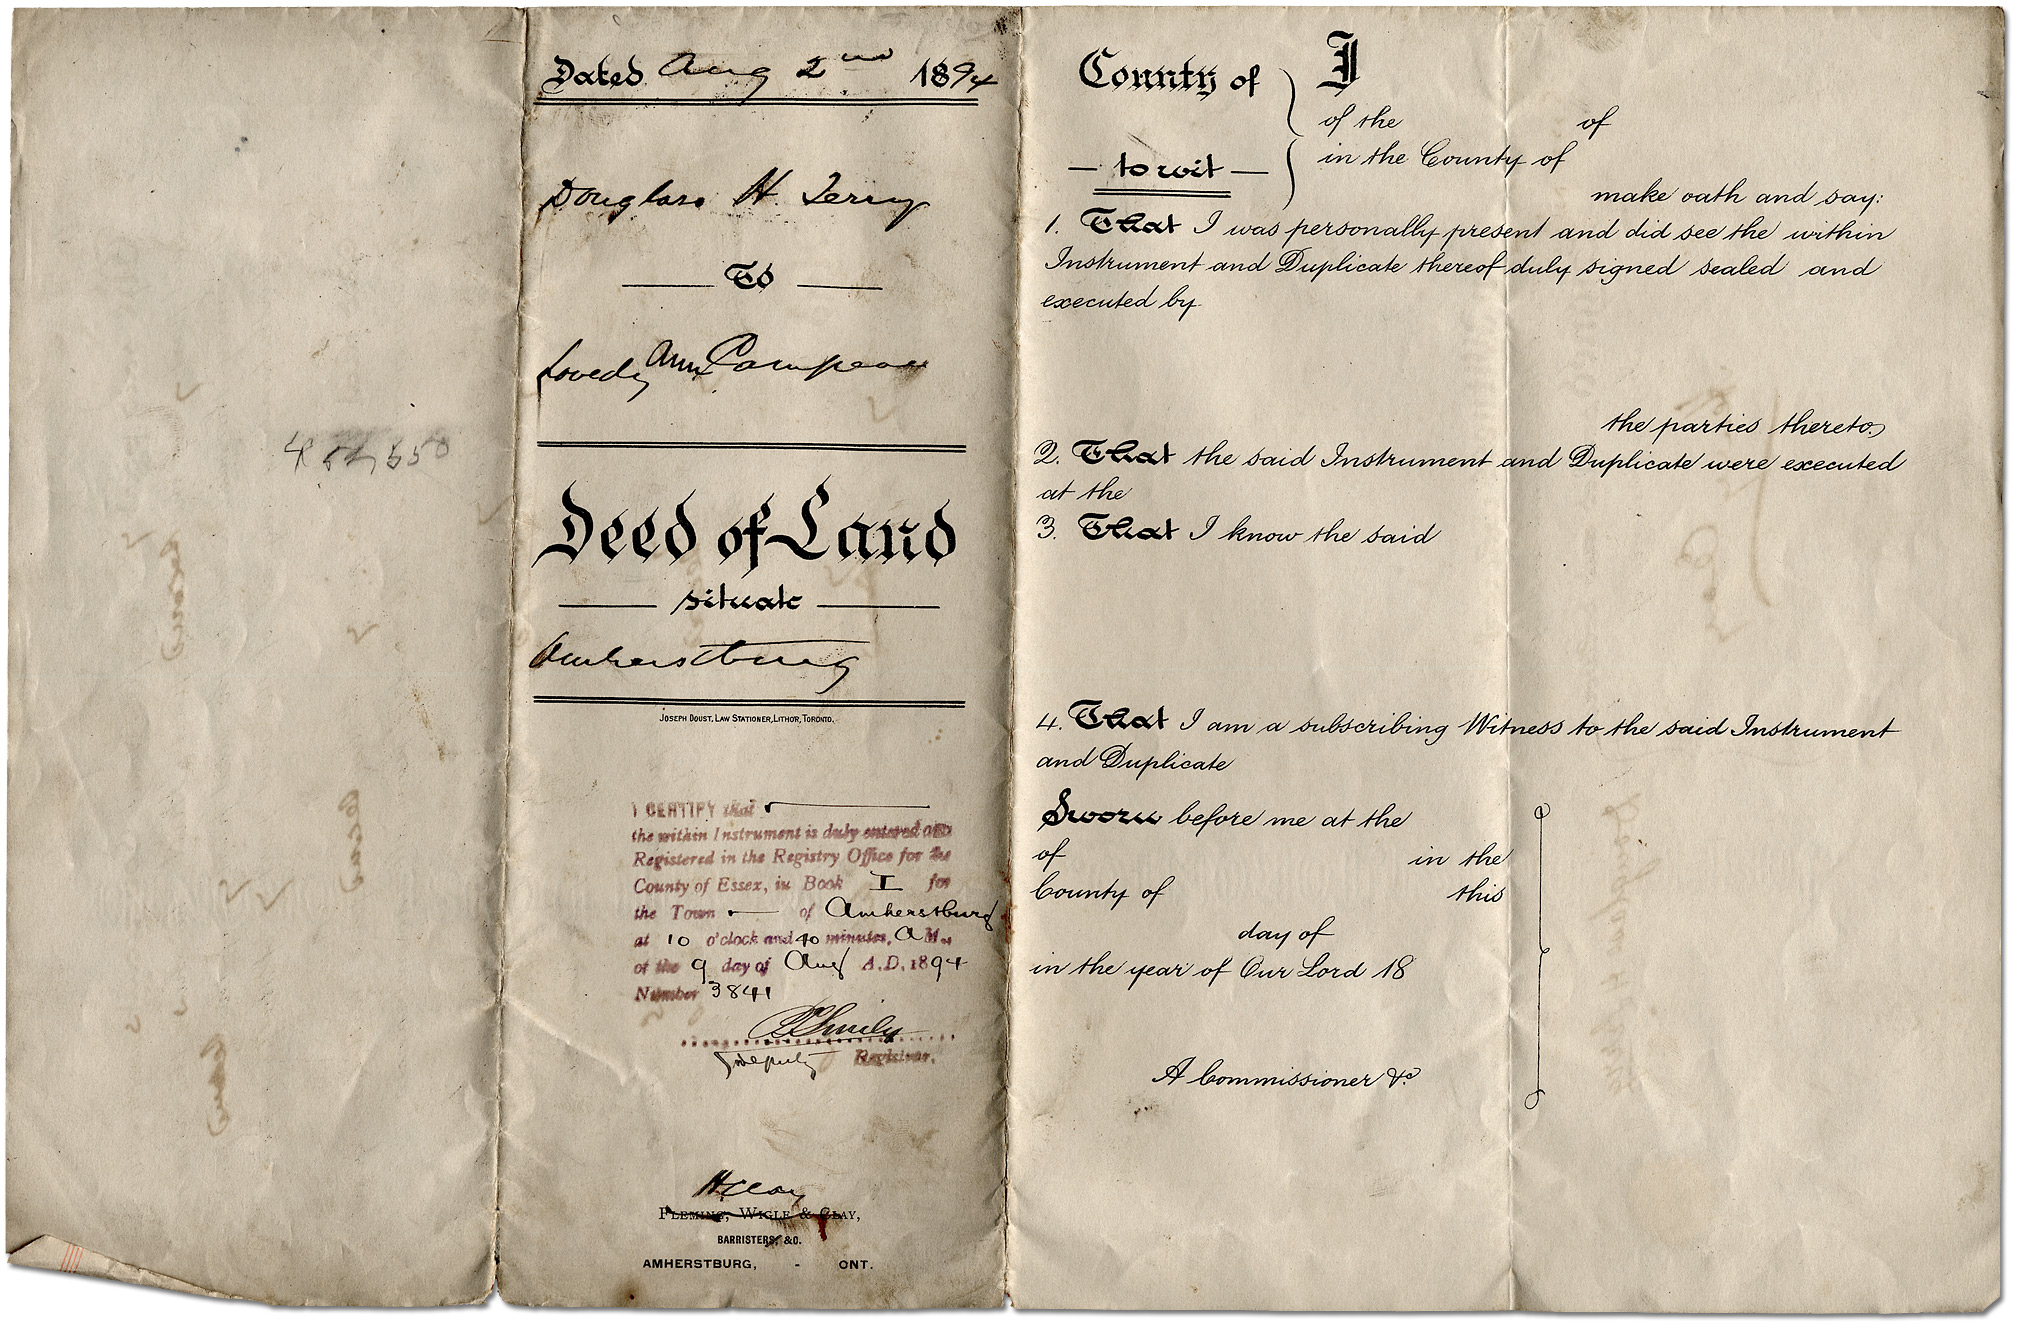 Dated Aug 2nd 1894
Douglass H. Terry
To
Lovedy Ann Campeau
Deed of Land
situate
Amherstburg
JOSEPH DOUST, LAW STATIONER, LITHOR, TORONTO.
I CERTIFY that
the within Instrument is duly entered and
Registered in the Registry Office for the
County of Essex, in Book I for
the Town of Amherstburg
at 10 o'clock and 40 minutes, A M.,
of the 9 day of Aug A.D. 1894
Number 3841
Deputy Registrar.
H Clay
FLEMING, WIGLE & CLAY,
BARRISTERS, &C.
AMHERSTBURG, - ONT.
County of
to wit
I
of the of
in the County of
make oath and say:
1. That I was personally present and did see the within
Instrument and Duplicate thereof duly signed sealed and
executed by
the parties thereto.
2. That the said Instrument and Duplicate were executed
at the
3. That I know the said
4. That I am a subscribing Witness to the said Instrument
and Duplicate
Sworn before me at the
of in the
County of this
day of
in the year of Our Lord 18
A Commissioner &c